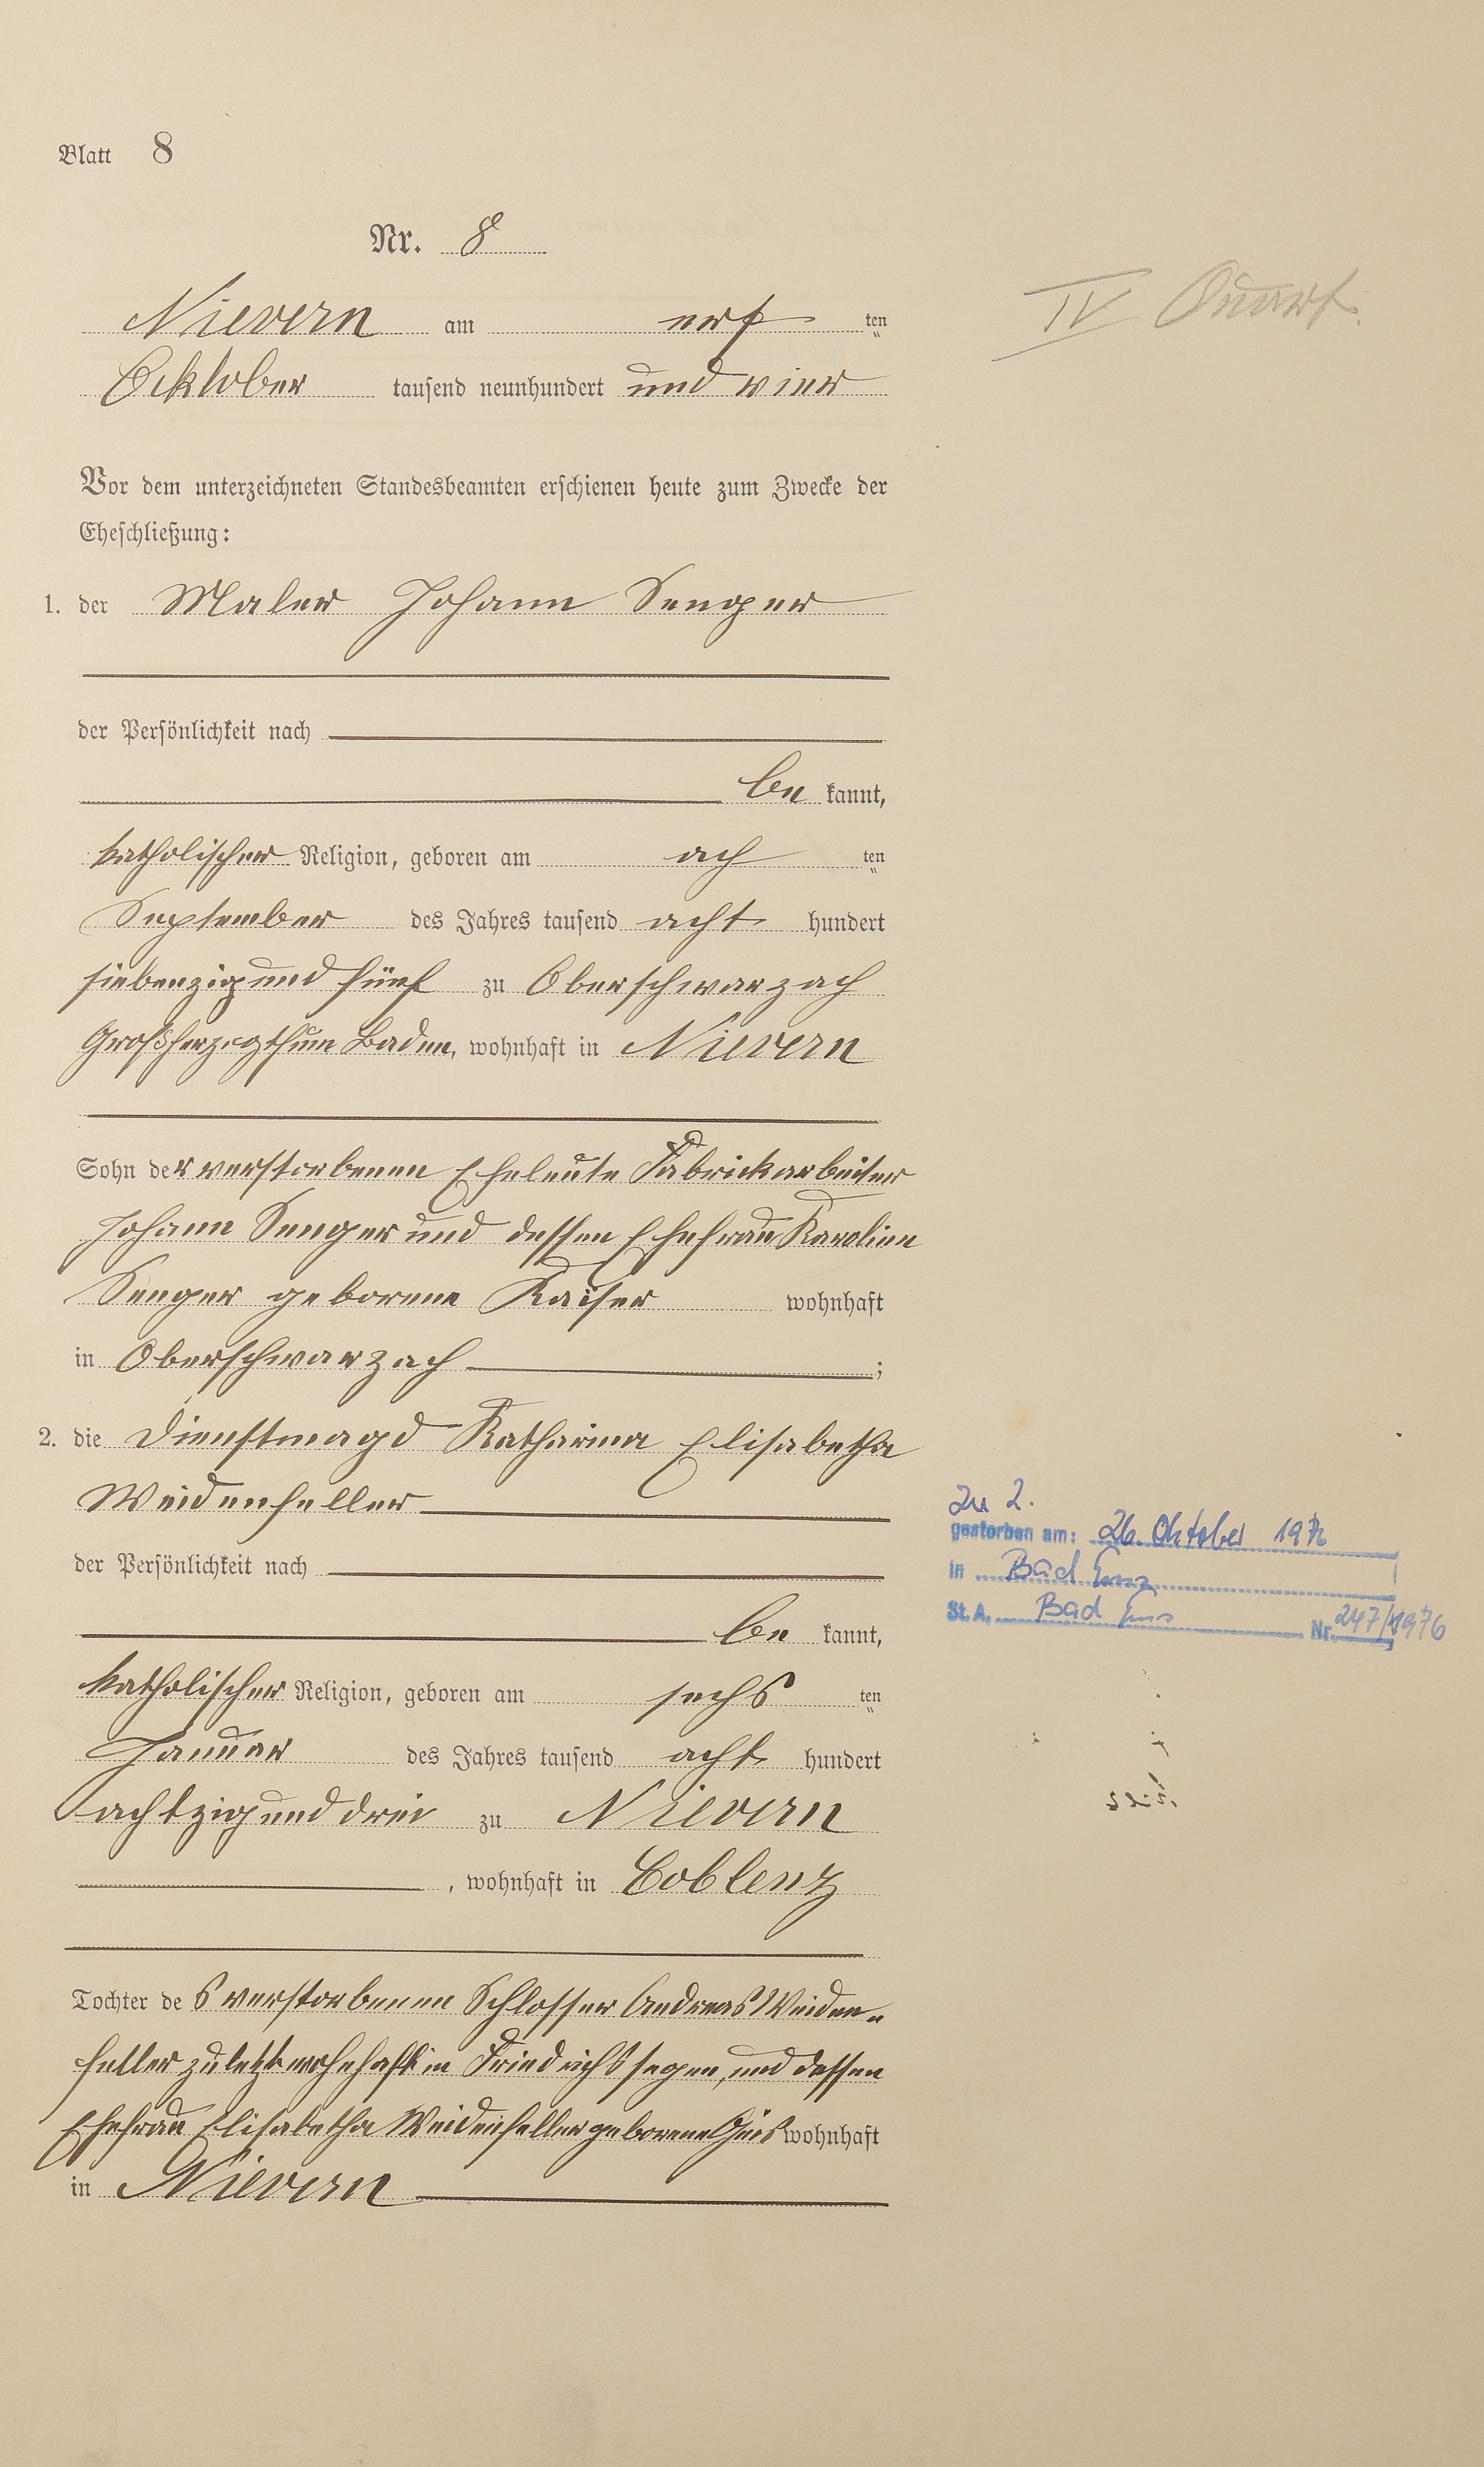 Blatt 8
Nr. 8
IV Quart.
Nievern am ten
Ocktober tausend neunhundert und vier
Vor dem unterzeichneten Standesbeamten erschienen heute zum Zwecke der
Eheschließung:
1. der Maler Johann Senger
der Persönlichkeit nach
be kannt,
katholischer Religion, geboren am ach ten
September des Jahres tausend acht hundert
siebenzig und fünf zu Oberschwarzach
Großherzogthum Baden, wohnhaft in Nievern
Sohn der verstorbenen Eheleute Fabrickarbeiter
Johann Senger und dessen Ehefrau Karoline
Senger geborene Kaiser wohnhaft
in Oberschwarzach ;
2. die Dienstmagd Katharina Elisabetha
Weidenfeller
der Persönlichkeit nach
be kannt,
katholischer Religion, geboren am sechs ten
Januar des Jahres tausend acht hundert
achtzig und drei zu Nievern
, wohnhaft in Coblenz
Tochter des verstorbenen Schlosser Andreas Weiden-
feller zuletzt wohnhaft in Friedrichssegen, und dessen
Ehefrau Elisabetha Weidenfeller geborene wohnhaft
in Nievern
Zu 2.
gestorben am: 26. Oktober
in Bad Ems
St. A. Bad Ems Nr. 247/1976